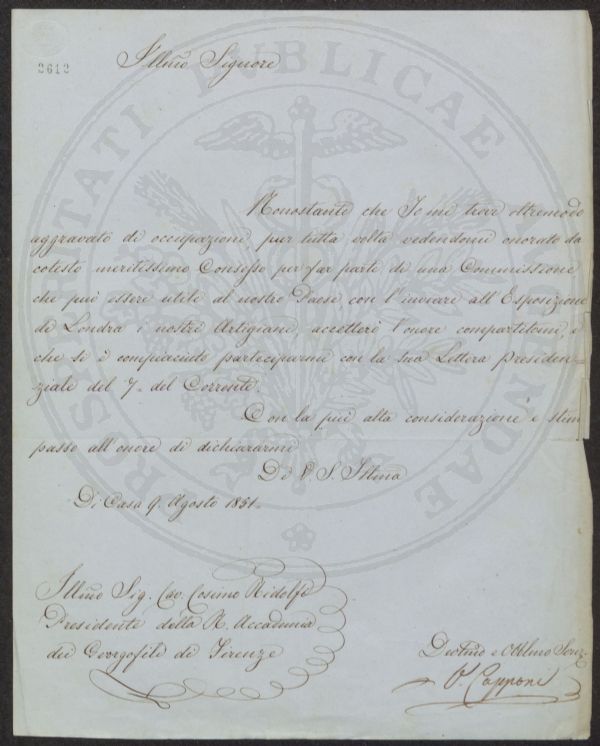 2612
Illmo Signore
PROSPERITATI PUBLICAE AUGENDAE
Nonostante che Io mi trovi oltremodo
aggravato di occupazioni, pur tutta volta vedendomi onorato da
cotesto meritissimo Consesso per far parte di una Commissione
che può essere utile al nostro Paese, con l'inviare all'Esposizione
di Londra i nostri Artigiani, accetterò l'onore compartitomi, e
che si è compiaciuto parteciparmi con la sua Lettera Presiden=
ziale del 7. del Corrente.
Con la più alta considerazione e stim
passo all'onore di dichiararmi
Di V. S. Illma
Di Casa 9. Agosto 1851.
Illmo Sig. Cav. Cosimo Ridolfi
Presidente della R. Accademia
dei Georgofili di Firenze
Devmo e Obblmo Serv.
Capponi